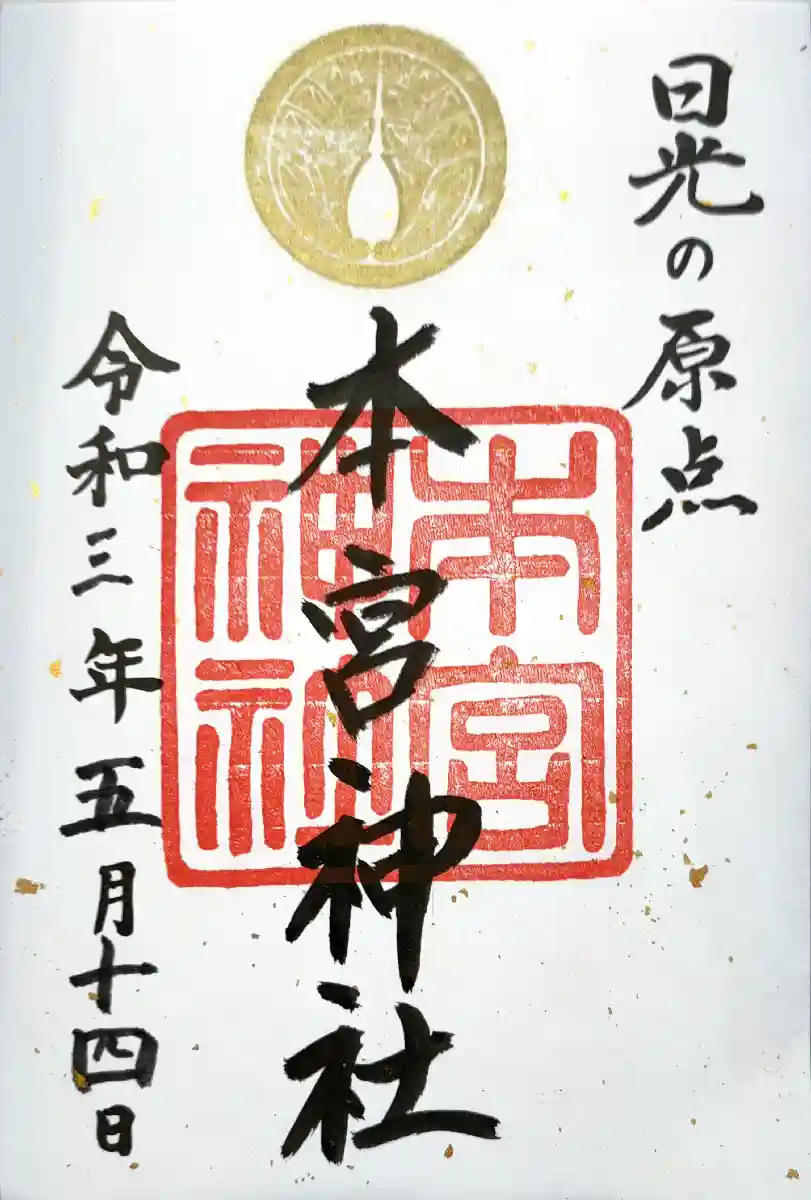 日光の原点
本宮神社
本宮神社
令和三年五月十四日